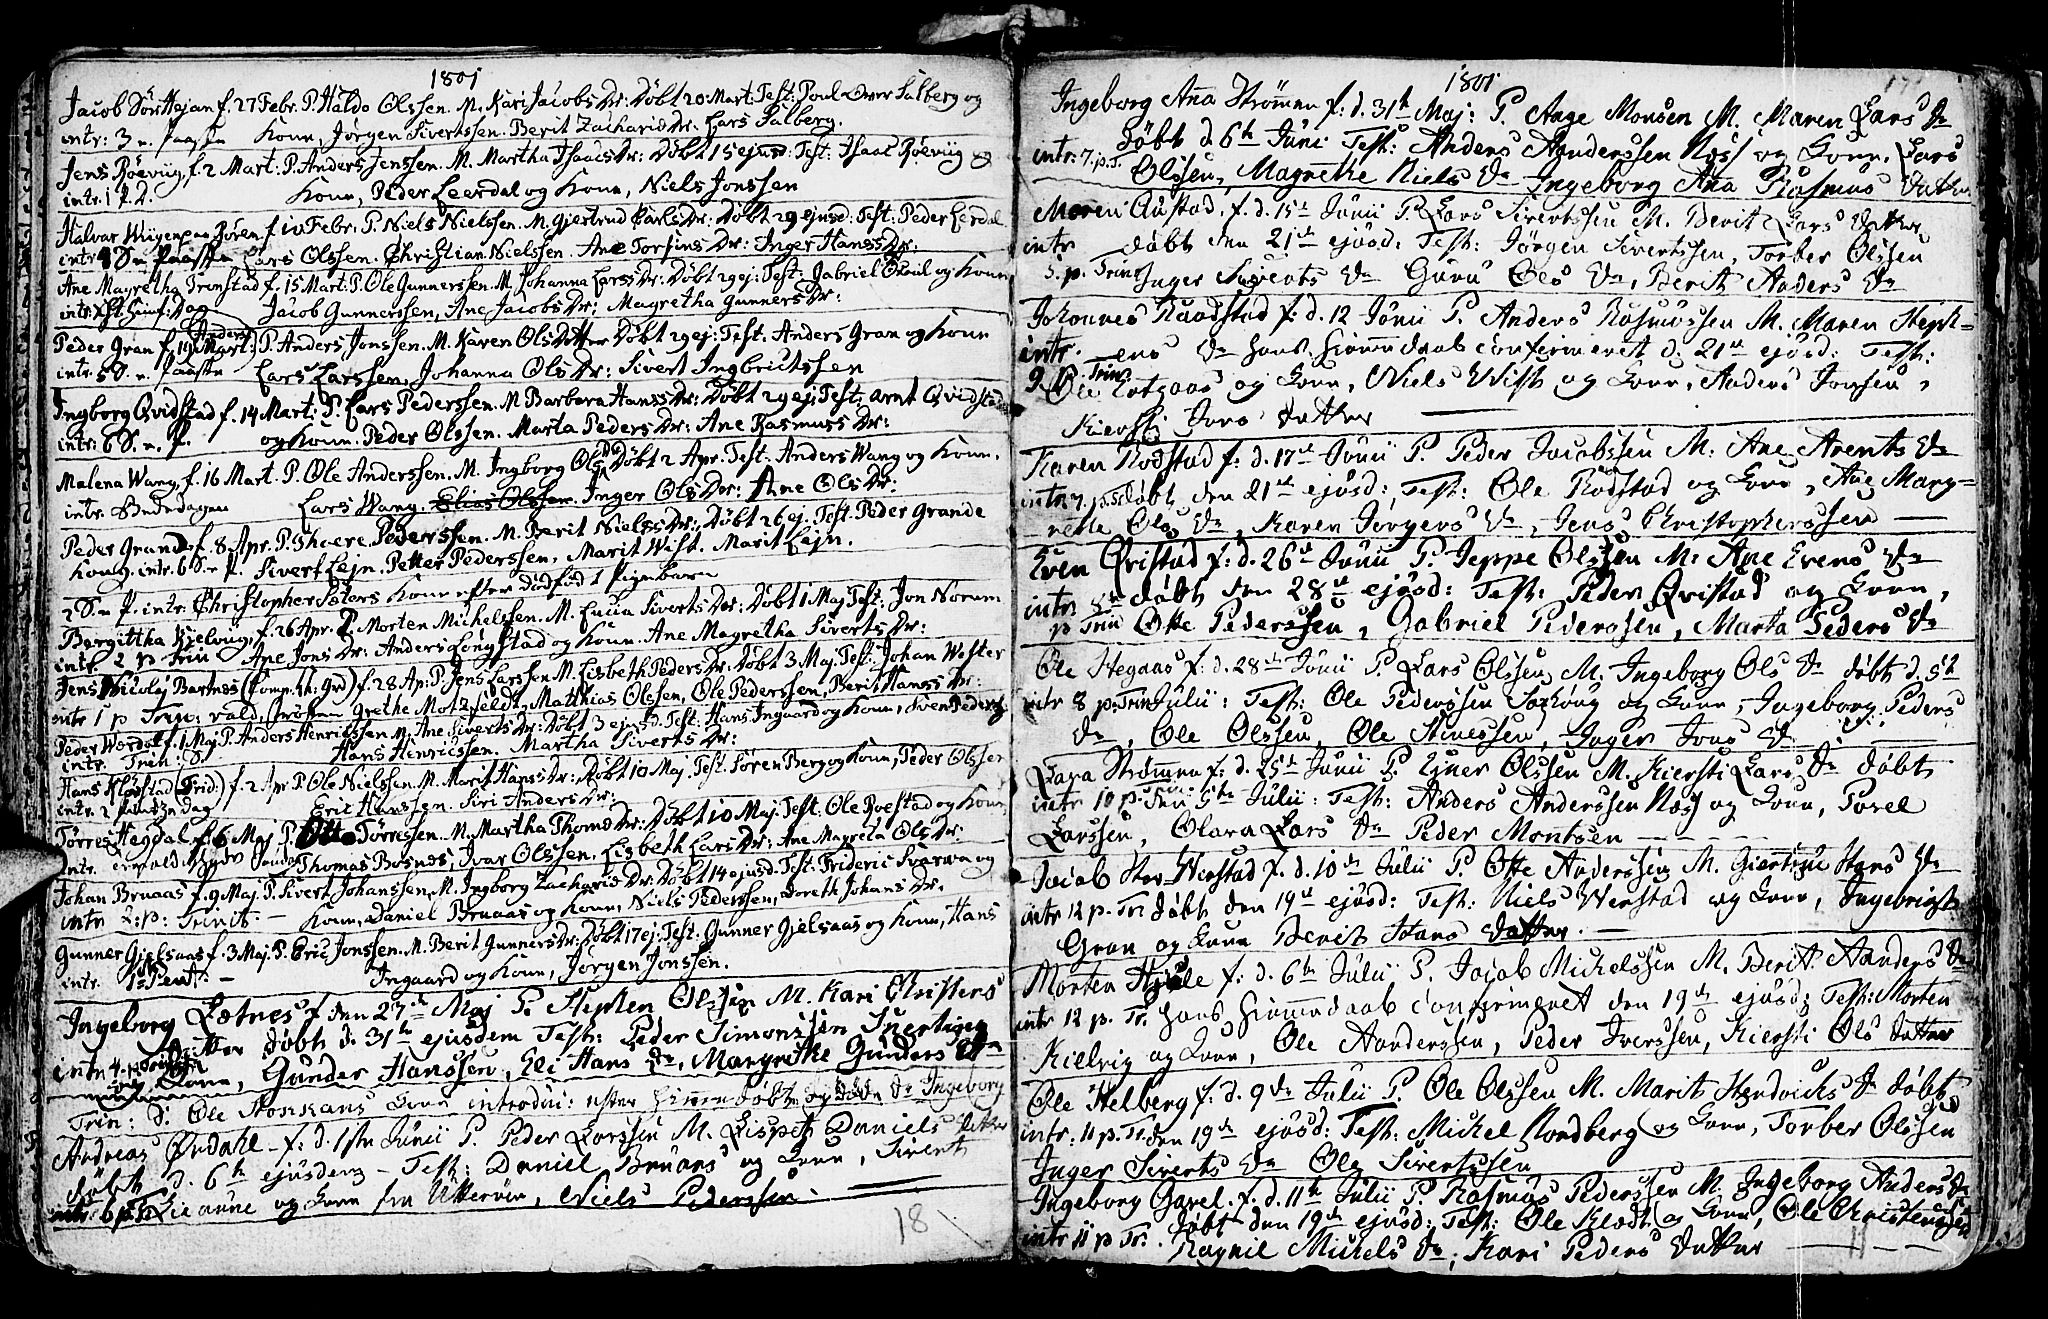 1801
Jacob Sør Hejan f. 27 Febr. P. Haldo Olssen. M. Kari Jacobs Dr: Døbt 20 Mart: Test: Poul Over Salberg og
intr: 3 p. Paaske Konn, Jørgen Sivertssen. Berit Zacharis Dr. Lars Salberg.
Jens Røeviig f. 2 Mart: P. Anders Jenssen. M. Martha Isaacs Dr: Døbt 15 ejusd: Test: Isaac Røeviig og
intr. 1 P. D. Konn, Peder Leerdal og Konn, Niels Jonssen
Halvar f. 10 Febr. P. Niels Nielssen. M. Giertrud Carls Dr: Døbt 29 ejusd: Test: Peder Lerdal
intr 4 S. p. Paaske Lars Olssen. Christian Nielssen. Ane Torfins Dr: Inger Hanss Dr.
Ane Magretha Tronstad f. 15 Mart: P. Ole Gunnerssen. M. Johanna Larss Dr: Døbt 29 ej: Test: Gabriel Qvil og Konn
intr. Jacob Gunnerssen, Ane Jacobs Dr: Magretha Gunners Dr:
Peder Gran f. 19 Mart: P. Anders Jonssen. M. Karen Ols Dotter Døbt 29 ej: Test. Anders Gran og Konn
intr. 5 S. p. Paaske Lars Larssen, Johanna Ols Dr: Sivert Ingbrictssen
Ingborg Qvidstad f. 14 Mart: P. Lars Pederssen. M Barbara Hanss Dr: Døbt 29 ej: Test: Arnt Qvidstad
intr: 6 S. p. P. og Konn. Peder Olssen. Marta Peders Dr: Ane Rasmuss Dr:
Malena Wang f. 16 Mart. P. Ole Anderssen. M. Ingborg Ols Dr Døbt 2 Apr. Test: Anders Wang og Konn.
intr. Bededagen Lars Wang. Elias Olssen. Inger Ols Dr: Ane Ols Dr:
Peder Grande f. 8 Apr. P. Thoere Pederssen. M. Berit Niels Dr. Døbt 26 ej. Test. Peder Grande
Konn. intr. 6 S. p. P. Sivert Lejn. Petter Pederssen, Marit Wist. Marit Lejn.
2 S. p. P. intr: Christopher Sætors Konn efter dødfød 1 Pigebarn
Bergittha Kjelvug f. 26 Apr. P. Morten Michelssen. M. Lucia Siverts Dr: Døbt 1 Maj Test: Jon Norum
intr. 2 p Trin Ane Jons Dr: Anders Longstad og Konn. Ane Magretha Siverts Dr:
Jens Nicolaj Bartnes f. 28 Ap: P. Jens Larssen M. Lisbeth Peders Dr: Døbt 3 Maj. Test: Johan Wester
intr 1 p Trin: vald, Strøm Grethe Motzfeldt, Matthias Olssen, Ole Pederssen, Berit Hanss Dr:
Peder Werdal f. 1 Maj P. Anders Henricssen M. Ane Siverts Dr: Døbt 3 ejusd. Test: Hans Ingaard og Konn, Sven Peders
intr. Trin: S. Hans Henricssen. Martha Siverts Dr:
Hans Kløvstad f. 2 Apr P. Ole Nielssen M. Marit Hans Dr: Døbt 10 Maj. Test. Søren Berg og Konn, Peder Olssen
intr. 2 Pintzdag Eric Hanssen. Siri Anders Dr:
Tørres Hegdal f. 6 Maj P. Otte Tørressen. M. Martha Thoms Dr: Døbt 10 Maj. Test. Ole Roestad og Konn
intr. Thomas Bosnes, Ivar Olssen. Lisbeth Lars Dr: Ane Magreta Ols Dr:
Johan Bruaas f. 9 Maj. P. Sivert Johanssen, M. Ingborg Zacharis Dr: Døbt 14 ejusd. Test: Frideric Svarva og
intr 2. p: Trinit. — Konn, Daniel Bruaas og Konn, Niels Pederssen, Doreth Johans Dr.
Gunner Gjelsaas f. 3 Maj. P. Eric Jonssen. M. Berit Gunners Dr: Døbt 17 ej: Test: Gunner Gjelsaas og Konn, Hans
intr. 1st Pent: — Ingaard og Konn, Jørgen Jonssen.
Ingeborg Letnes f. den 27de Maj P. Stephen Olssen M. Kari Christers
intr 4. p. datter døbt d. 31te ejusdem Test: Peder Simonssen
og Konn, Gunder Hanssen, Eli Hans Dr, Margrethe Gunders Dr
Trin: d: Ole Stokkans Konn introdu: efter hiemmedøbt og død Dr Ingeborg
Andreas Ørdahl f: d. 1ste Junii P. Peder Larssen M. Lispet Daniels Datter
døbt d. 6te ejusdem — Test: Daniel Bruaas og Konn, Sivert
intr 6 p. Tr. og Konn fra Ytterøen, Niels Pederssen —
18
1801
Ingeborg Ana Strømen f: d. 31te Maj: P. Aage Monsen M. Maren Lars Dr
døbt d 6te Junii Test: Anders Anderssen Næss og Konn, Lars
intr: 7. p. T. Olssen, Magrethe Niels Dr Ingeborg Ana Rasmus Datter
Maren Austad, f. d. 15de Junii P. Lars Sivertssen M. Berit Lars Datter
intr døbt den 21de ejusd: Test: Jørgen Sivertssen, Torber Olssen
5. p. Trin Inger Siverts Dr Guru Ols Dr, Berit Anders Dr
Johannes Raadstad f: d. 12 Junii P. Anders Rasmussen M. Maren Steph=
intr. ens Dr hans hiemedaab confirmeret d. 21de ejusd: Test:
9 p. Trin Ole Lotgaas og Konn, Niels Wist og Konn, Anders Jonssen,
Kiersti Jons Datter
Karen Rodstad f: d. 17de Junii P. Peder Jacobssen M. Ane Arents Dr
intr 7. p. døbt den 21de ejusd: Test: Ole Rodstad og Konn, Ane Marg=
rete Ols Dr, Karen Jørgens Dr, Jens Christopherssen —
Even Qvistad f: d. 26de Junii P. Jeppe Olssen M. Ane Evens Dr
intr: døbt den 28de ejusd: Test: Peder Qvistad og Konn,
p Trin Otte Pederssen, Gabriel Pederssen, Marta Peders Dr
Ole Hegaas f: d. 28de Junii P. Lars Olssen M. Ingeborg Ols Dr døbt d. 5te
intr 8 p: Trin Julii: Test: Ole Pederssen Saxhoug og Konn, Ingeborg Peders
Dr, Ole Olssen, Ole Stinessen, Inger Jons Dr
Lara Strømen f: d. 25de Junii P. Ejner Olssen M. Kiersti Lars Dr døbt
intr 10 p. Trin 5te Julii: Test: Anders Anderssen Næss og Konn, Povel
Larssen, Olara Lars Dr Peder Montsen —
Jacob Stor Werstad f. d. 10de Julii P. Otte Anderssen M. Giertrud Hans Dr
intr 12 p. Tr. døbt den 19de ejusd: Test: Niels Werstad og Konn, Ingebrigt
Gran og Konn Berit Hans datter. —
Morten Hjelle f: d. 6te Julii P. Jacob Michelssen M. Berit Anders Dr
intr 12 p. Tr. hans hiemedaab confirmeret den 19de ejusd: Test: Morten
Kielvig og Konn, Ole Anderssen, Peder Iverssen, Kiersti Ols datter
Ole Helberg f: d. 9de Julii P. Ole Olssen M. Marit Hendricks Dr døbt
intr: 11 p. Tr. den 19de ejusd: Test: Mickel Nordberg og Konn, Torber Olssen
Inger Siverts Dr Ole Sivertssen
Ingeborg Gavel. f. d. 11te Julii P. Rasmus Pederssen M. Ingeborg Anders Dr
intr 11 p Tr. døbt den 19de ejusd: Test: Ole Klodt og Konn, Ole Christenssen
Ragnil Mickels Dr, Kari Peders Datter —